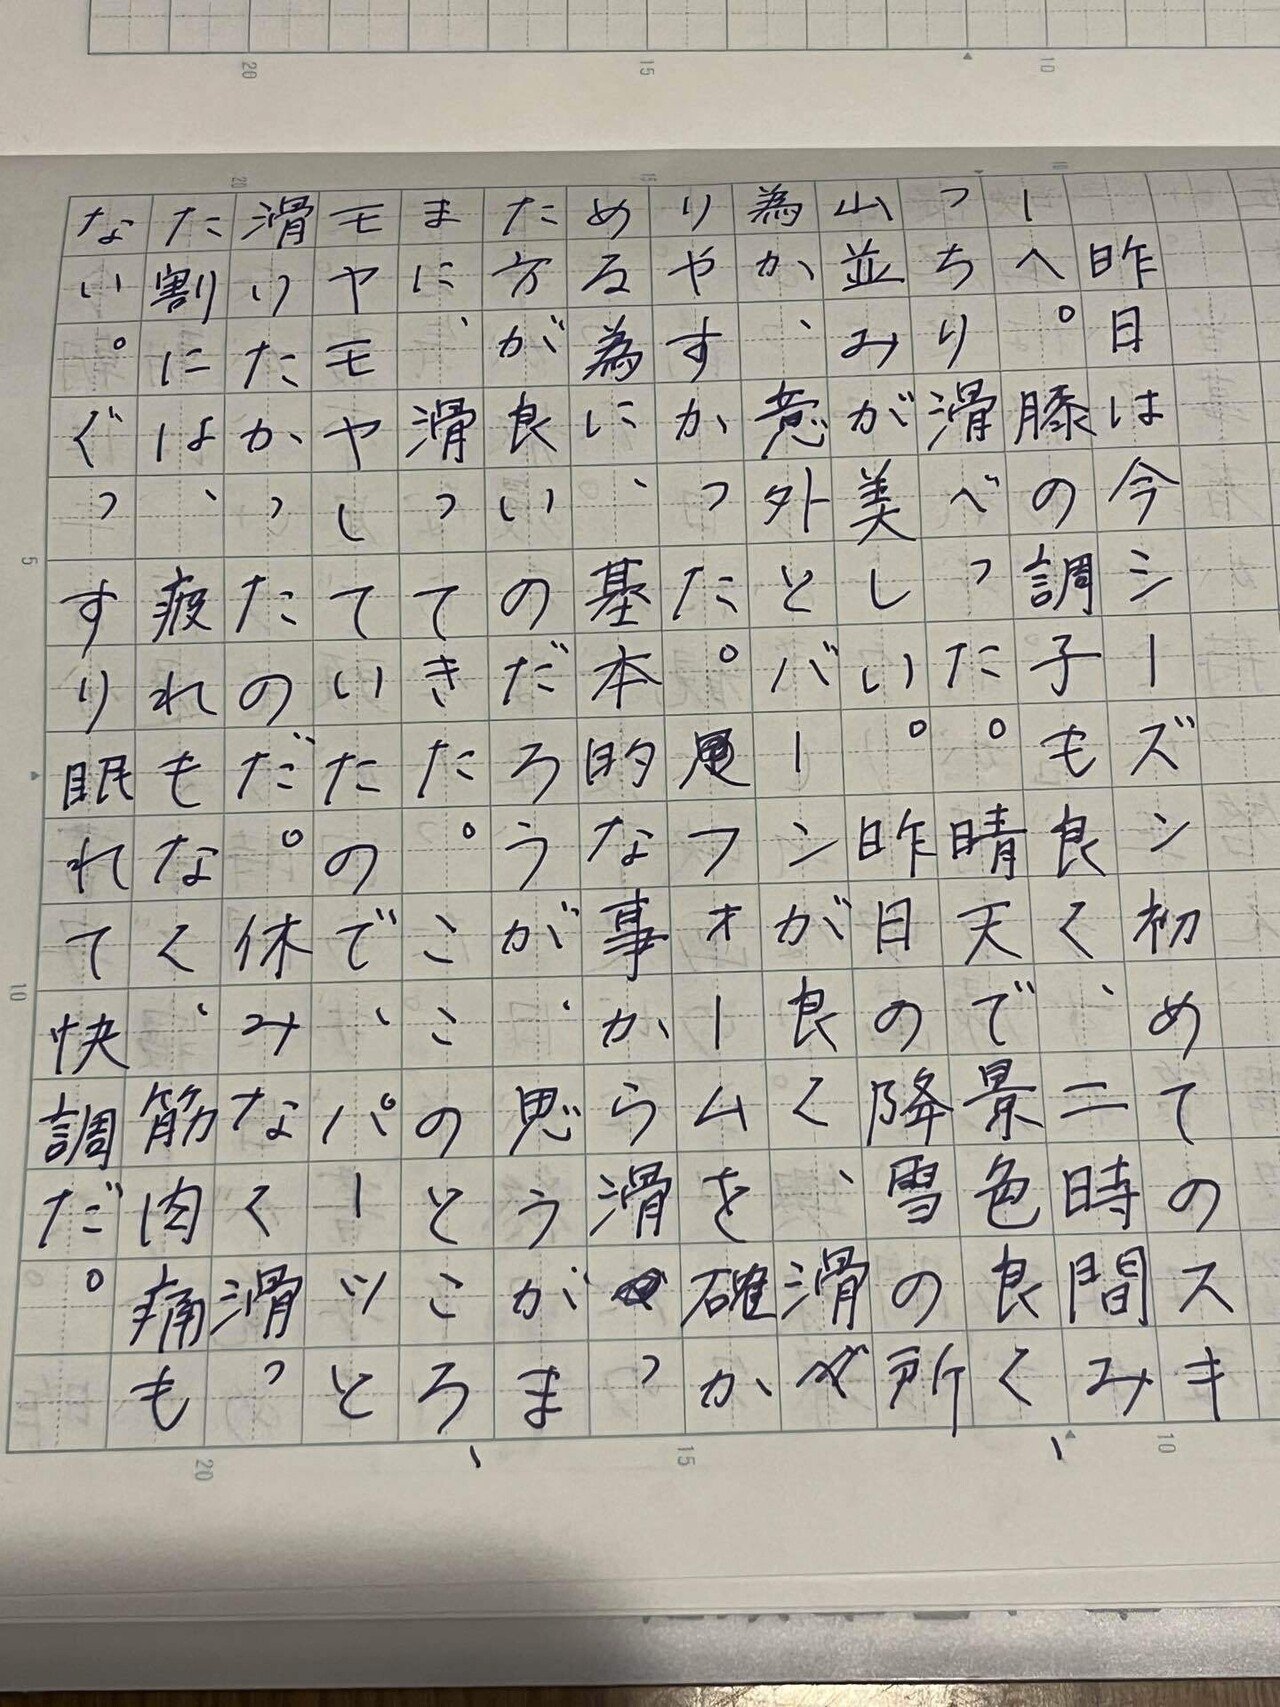 20 15 10
20 15 10
昨日は今シーズン初めてのスキ
ーへ。膝の調子も良く、二時間み
っちり滑べった。晴天で景色良く、
山並みが美しい。昨日の降雪の所
為か、意外とバーンが良く、滑べ
りやすかった。フォームを確か
める為に、基本的な事から滑っ
た方が良いのだろうが、思うがま
まに、滑ってきた。ここのところ、
モヤモヤしていたので、パーッと
滑りたかったのだ。休みなく滑っ
た割には、疲れもなく、筋肉痛も
ない。ぐっすり眠れて快調だ。
5
10
20 15 10